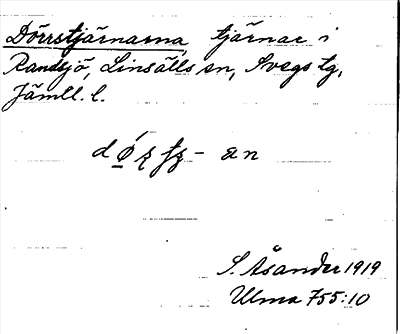 Dörrstjärnarna, tjärnar i
Randsjö, Linsälls sn, Svegs tg,
Jämtl. l.
- an
S. Åsander 1919
Ulma 755:10